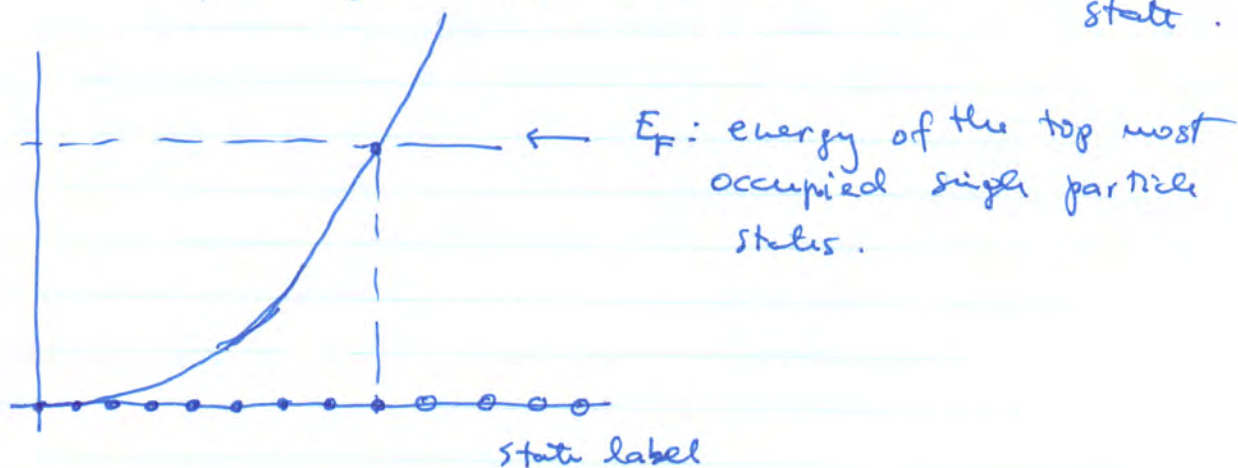 state .
← E_F : energy of the top most
occupied single particle
states .
state label